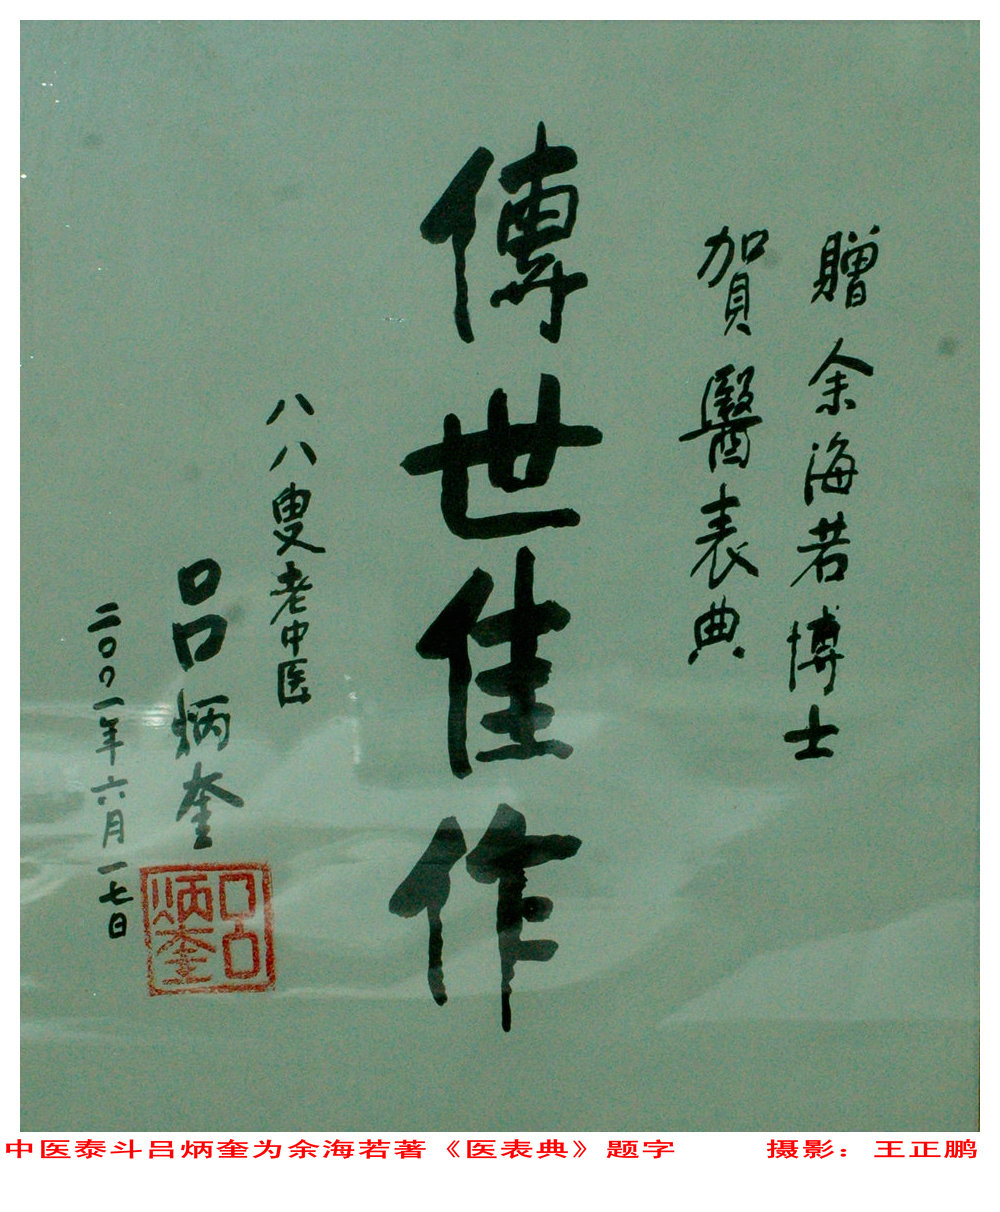 贈余海若博士
賀醫表典
傳世佳作
八八叟老中医
吕炳奎
二00一年六月一七日
吕炳奎
中医泰斗吕炳奎为余海若著《医表典》题字 摄影：王正鹏